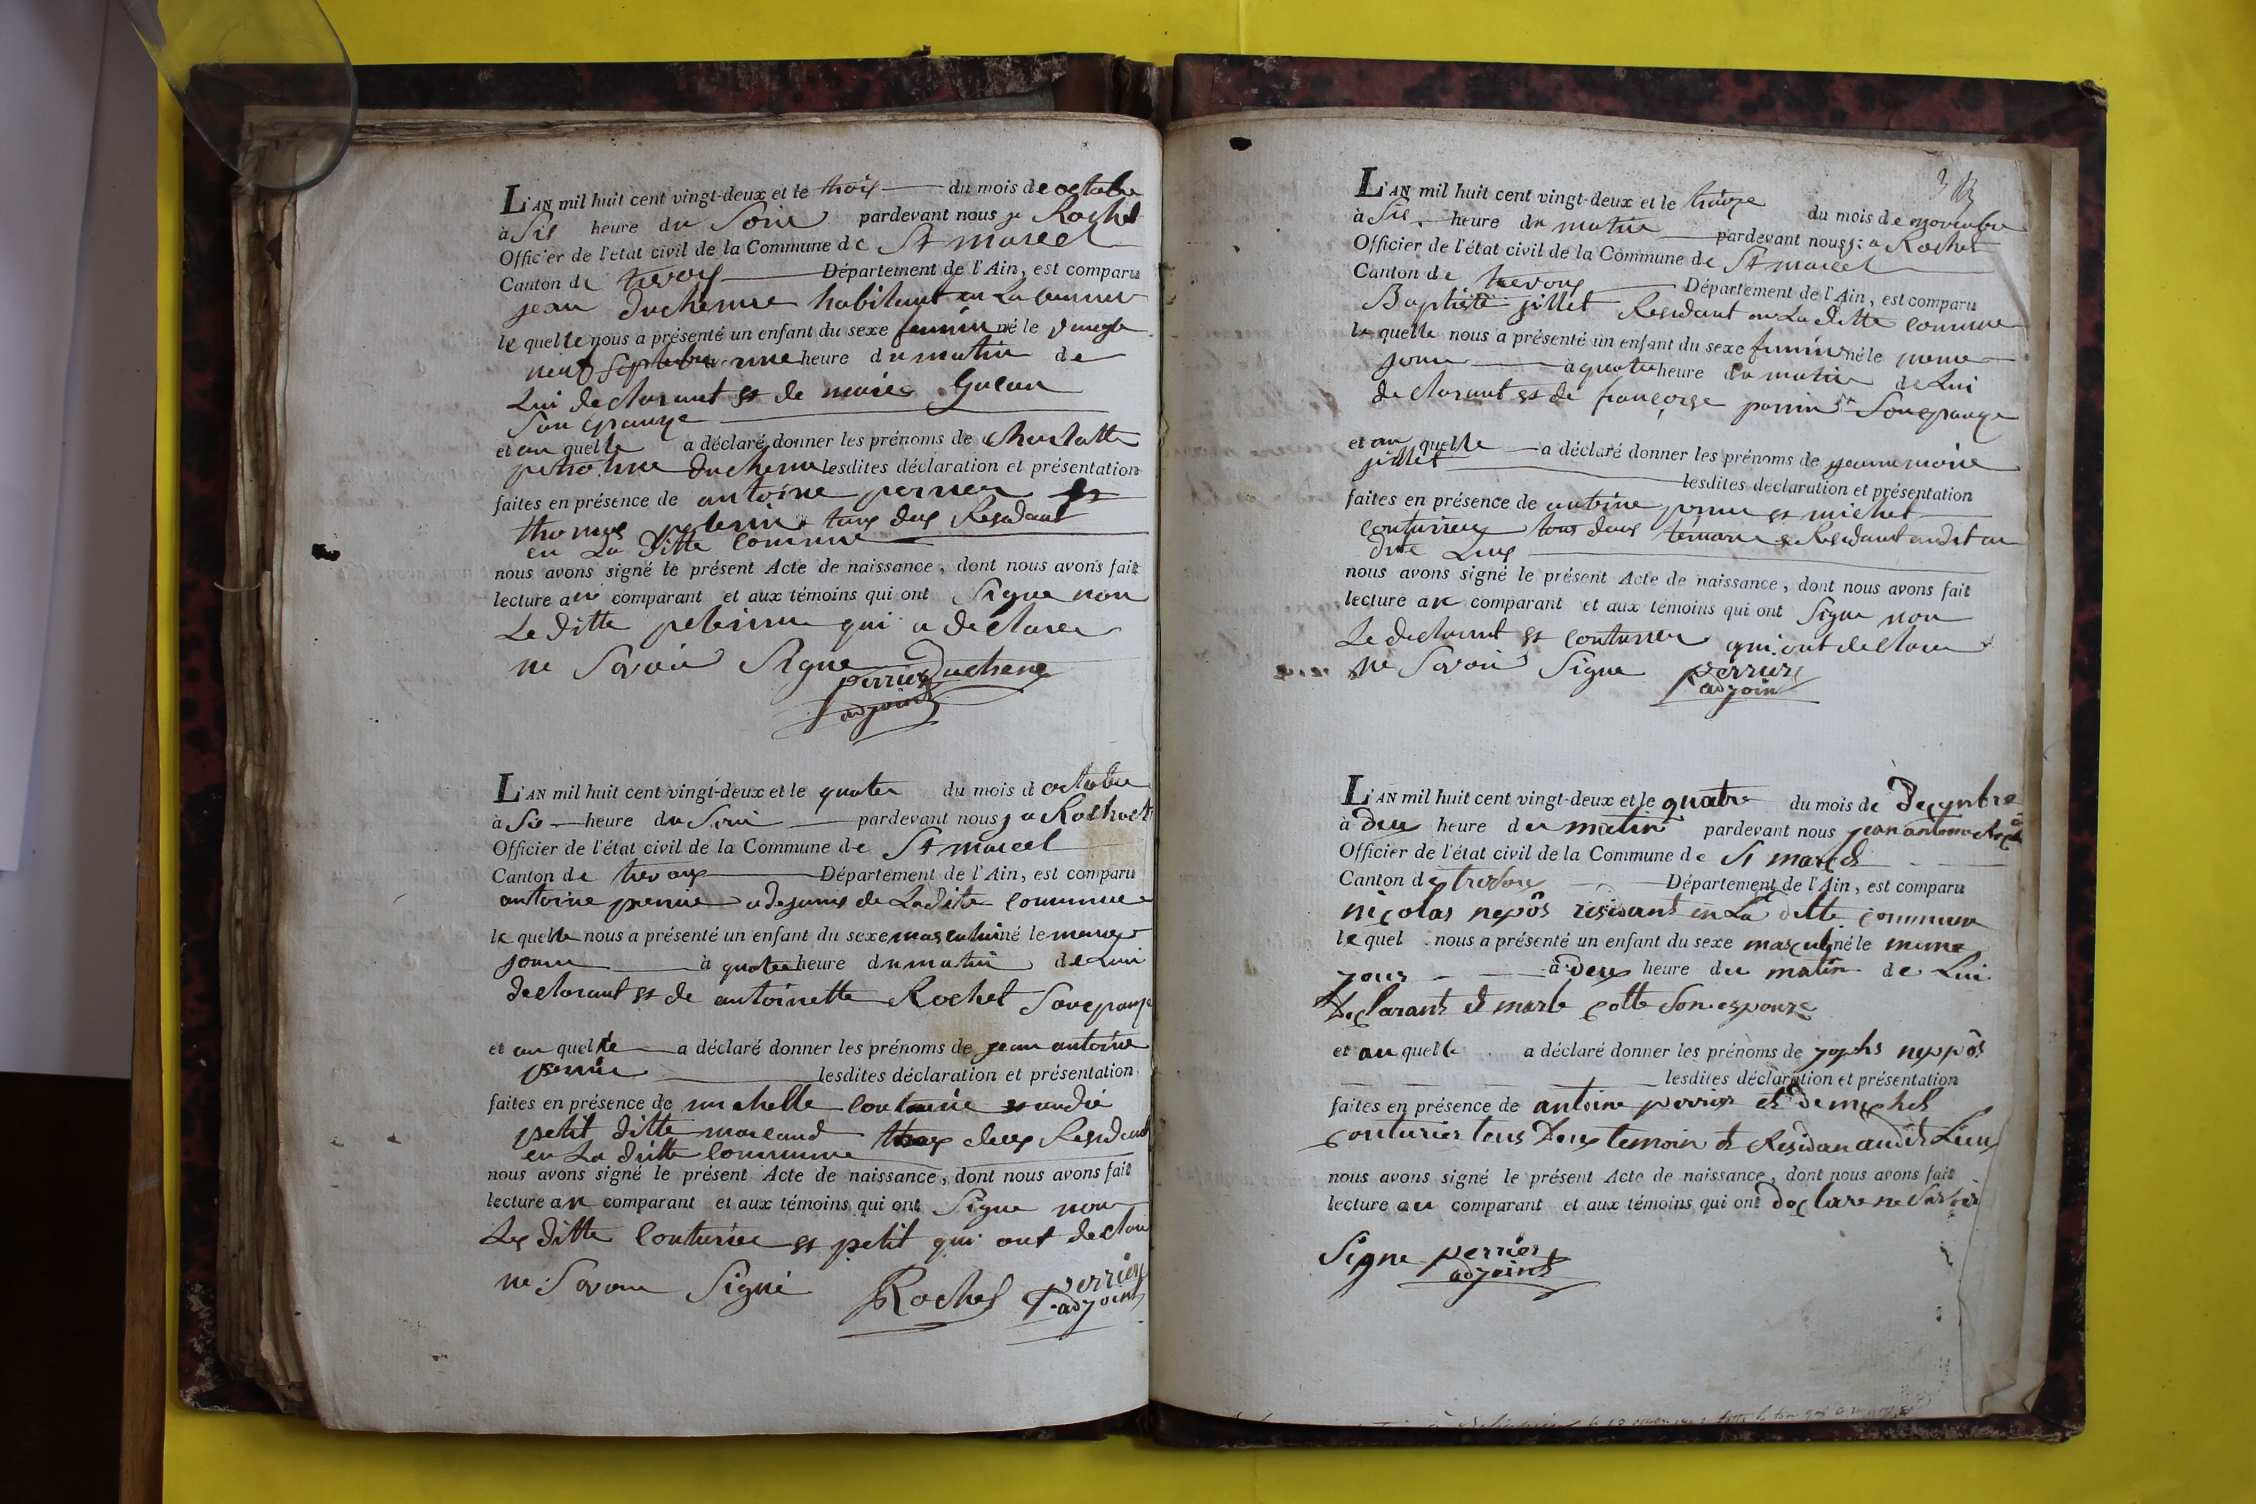 L'AN mil huit cent vingt-deux et le trois du mois de octobre
à Sis heure du Soire pardevant nous j Rochet
Officier de l'état civil de la Commune de St marcel
Canton de trevoux Département de l'Ain, est comparu
jean duchenne habitant en La commune
le quelle nous a présenté un enfant du sexe feminin né le vingte
neuf septebre une heure du matin de
Lui declarant et de marie
Son epouze
et au quelle a déclaré donner les prénoms de
duchenne lesdites déclaration et présentation
faites en présence de antoine perrier et
thomas pelerin tous deus Residant
en La ditte commune
nous avons signé le présent Acte de naissance, dont nous avons fait
lecture au comparant et aux témoins qui ont Signe non
Le ditte qui a declarer
ne Savoir Signe Duchene
perrier
adjoint
L'AN mil huit cent vingt-deux et le quater du mois d octobre
à Sis heure du Soire pardevant nous j a Rochet
Officier de l'état civil de la Commune de St marcel
Canton de trevoux Département de l'Ain, est comparu
antoine perrier de Ladite commune
le quelle nous a présenté un enfant du sexe masculin né le meme
jour à quater heure du matin de Lui
declarant et de antoinette Rochet Son epouze
et au quelle a déclaré donner les prénoms de jean antoine
perrier lesdites déclaration et présentation
faites en présence de michelle couturie et andre
petit ditte marcand tous deus Residant
en La ditte commune
nous avons signé le présent Acte de naissance, dont nous avons fait
lecture au comparant et aux témoins qui ont Signe non
Les ditte couturier et petit qui ont declare
ne Savoir Signé Rochet perrier
adjoint
L'AN mil huit cent vingt-deux et le treize du mois de novembre
à Sis heure du matin pardevant nous j: a Rochet
Officier de l'état civil de la Commune de St marcel
Canton de trevoux Département de l'Ain, est comparu
Baptiste jillet Residant en La ditte commune
le quelle nous a présenté un enfant du sexe feminin né le meme
jour à quater heure du matin de Lui
declarant et de françoise perrin Son epouze
et au quelle a déclaré donner les prénoms de jeanne marie
jillet lesdites déclaration et présentation
faites en présence de antoine perrier et michel
couturier tous deus temoins Residant
dite Lieus
nous avons signé le présent Acte de naissance, dont nous avons fait
lecture au comparant et aux témoins qui ont Signe non
Le declarant et couturier qui ont declarer
ne Savoir Signe perrier
adjoint
L'AN mil huit cent vingt-deux et le quatre du mois de decembre
à deus heure du matin pardevant nous jean antoine Rochet
Officier de l'état civil de la Commune de St marcel
Canton de trevoux Département de l'Ain, est comparu
nicolas nepôs residant en La ditte commune
le quel nous a présenté un enfant du sexe masculin né le meme
jour à deus heure du matin de Lui
declarant et marie cotte Son espouze
et au quelle a déclaré donner les prénoms de josephs neppôs
lesdites déclaration et présentation
faites en présence de antoine perrier et de michel
couturier tous deus temoin et Residan audit Lieus
nous avons signé le présent Acte de naissance, dont nous avons fait
lecture au comparant et aux témoins qui ont declare ne Savoir
Signe perrier
adjoint